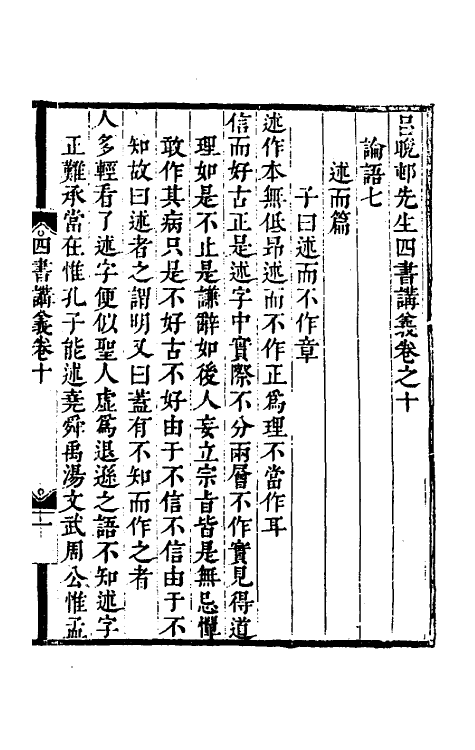 呂晚邨先生四書講義卷之十
論語七
述而篇
子曰述而不作章
述作本無低昂述而不作正爲理不當作耳
信而好古正是述字中實際不分兩層不作實見得道
理如是不止是謙辭如後人妄立宗旨皆是無忌憚
敢作其病只是不好古不好由于不信不信由于不
知故曰述者之謂明又曰蓋有不知而作之者
人多輕看了述字便似聖人虛爲退遜之語不知述字
正難承當在惟孔子能述堯舜禹湯文武周公惟孟
四書講義卷十
一